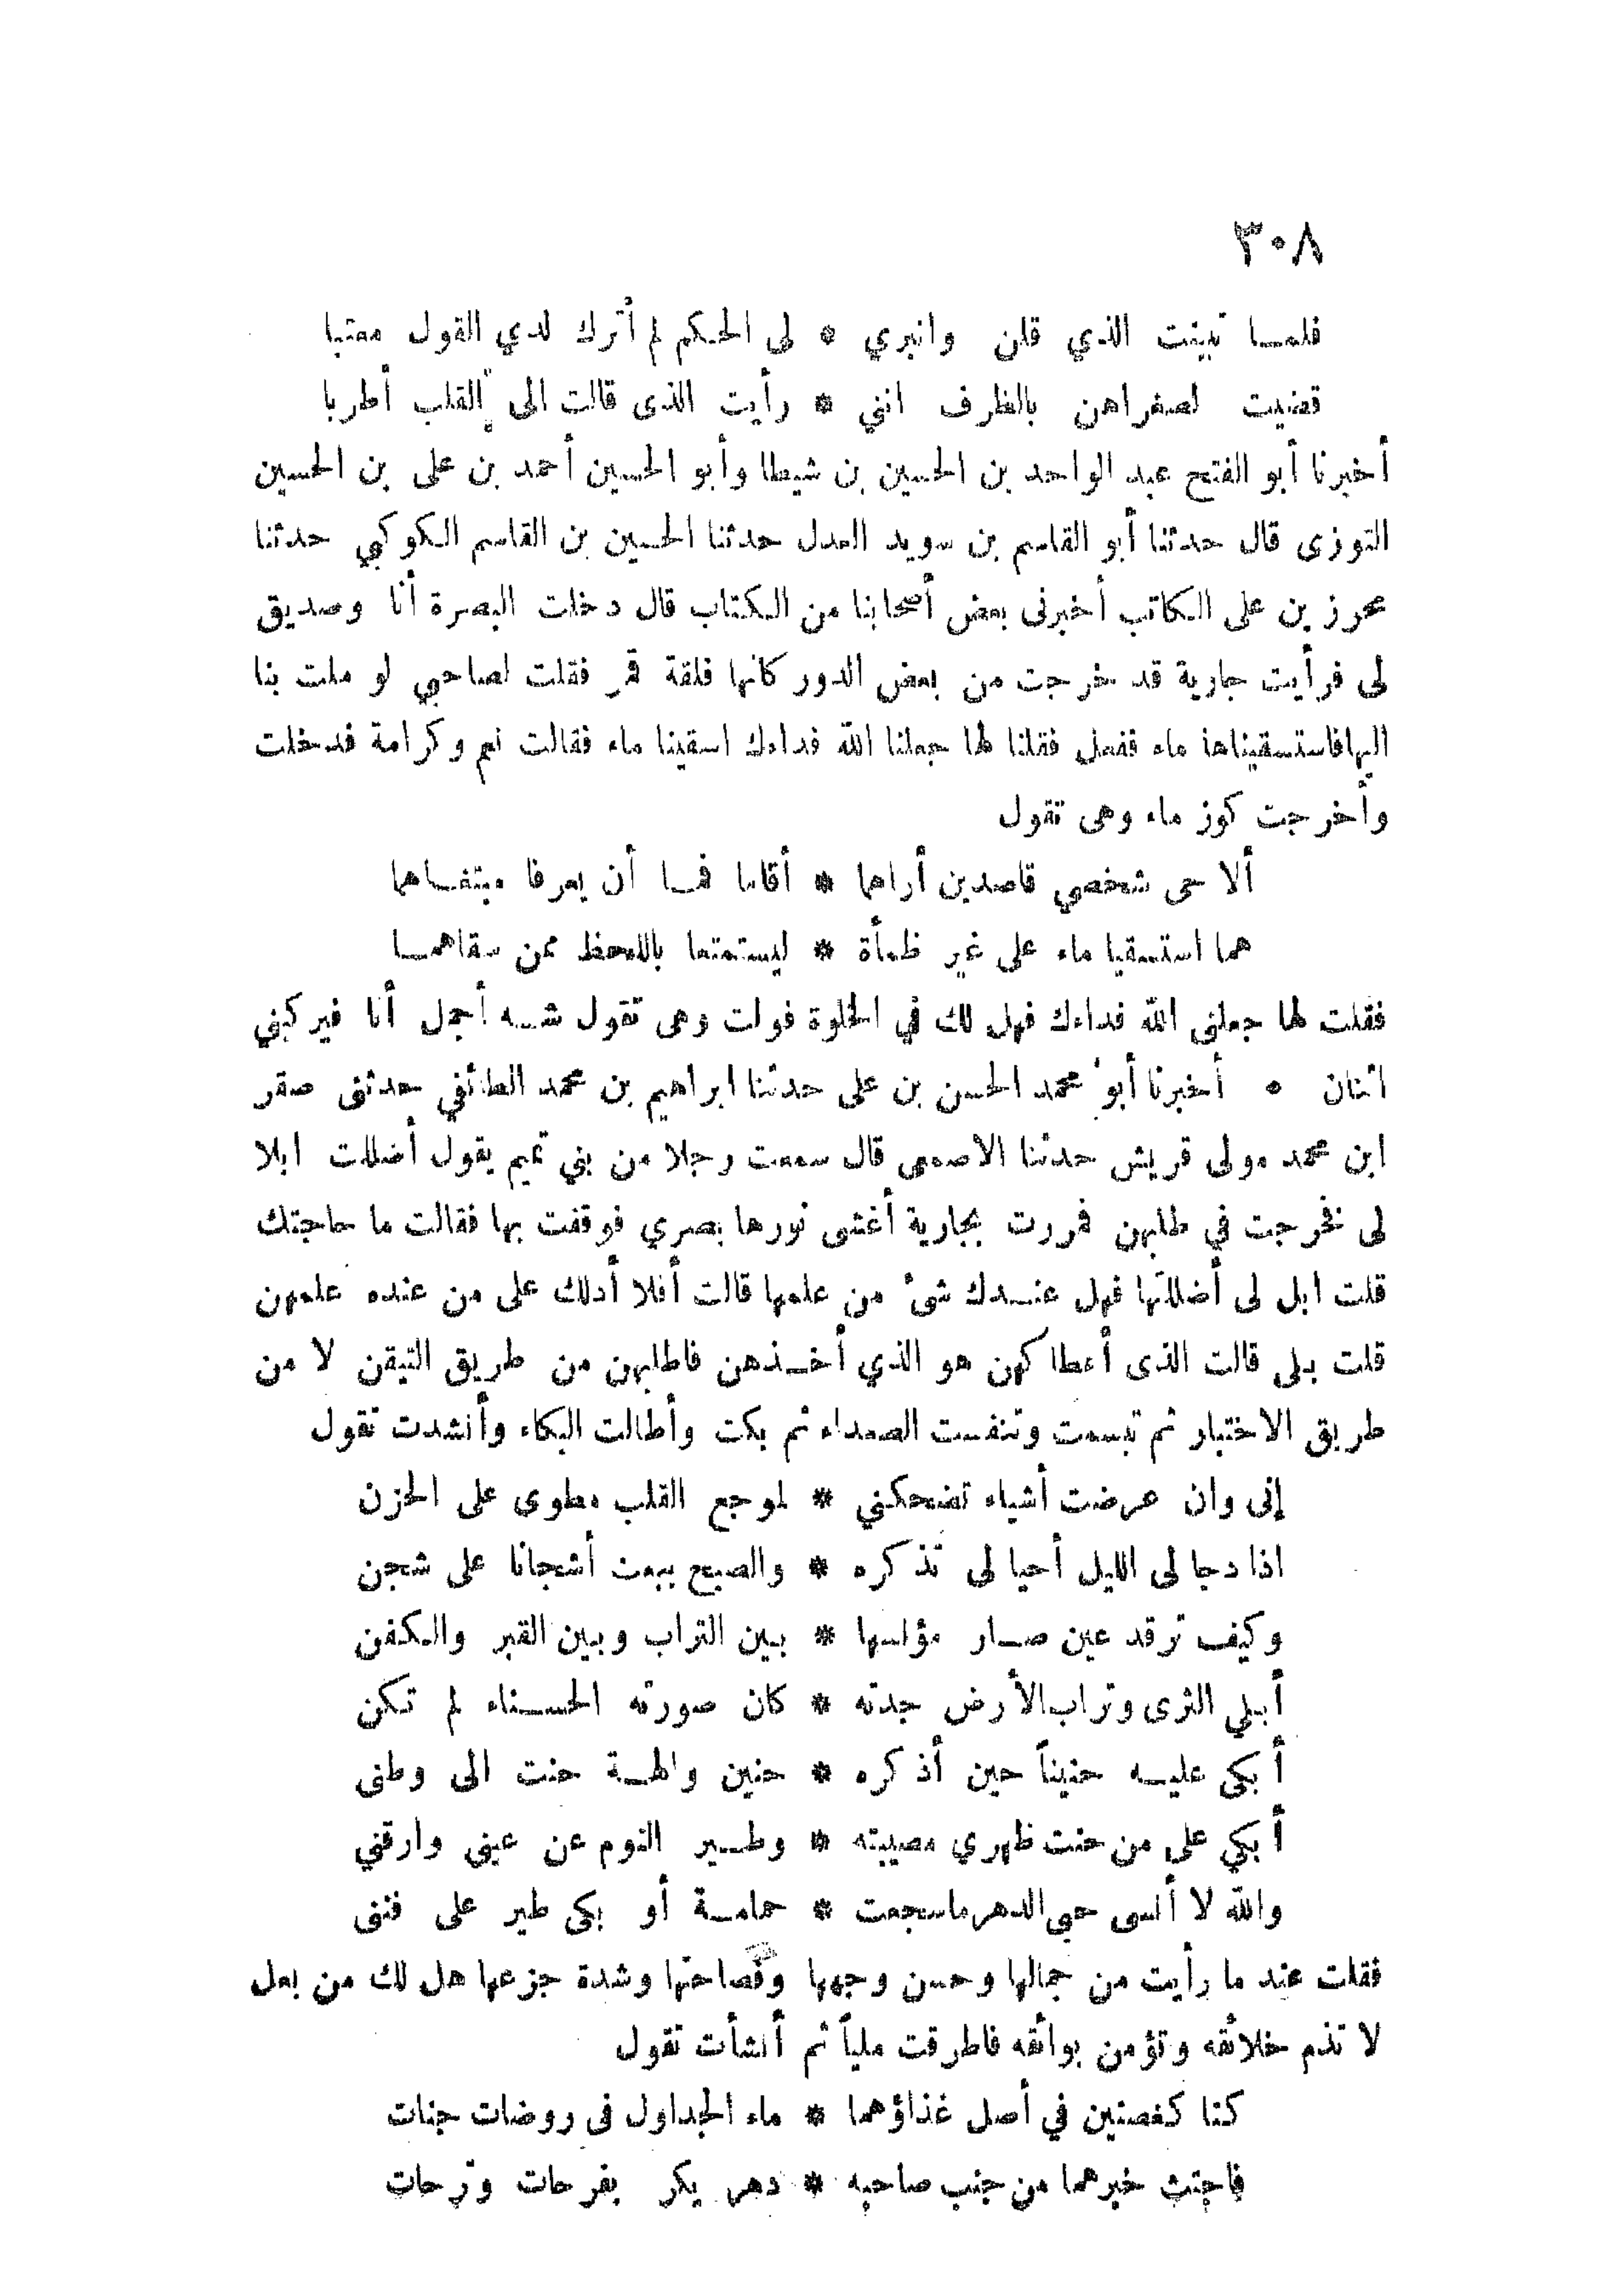 ٣٠٨
فلمـا تبينت الذي قلن وانبري * لى الحكم لم أترك لدي القول معتبا
قضيت لصغراهن بالظرف انني * رأيت الذى قالت الى القلب أطربا
أخبرنا أبو الفتح عبد الواحد بن الحسين بن شيطا وأبو الحسين أحمد بن على بن الحسين
التوزى قال حدثنا أبو القاسم بن سويد العدل حدثنا الحسين بن القاسم الكوكبي حدثنا
محرز بن على الكاتب أخبرنى بعض أصحابنا من الكتاب قال دخلت البصرة أنا وصديق
لى فرأيت جارية قد خرجت من بعض الدور كانها فلقة قمر فقلت لصاحبي لو ملت بنا
اليها فاستسقيناها ماء ففعل فقلنا لها جعلنا الله فداءك اسقينا ماء فقالت نعم وكرامة فدخلت
وأخرجت كوز ماء وهى تقول
ألا حى شخصي قاصدين أراهما * أقاما فمـا أن يعرفا مبتغـاهما
هما استسقيا ماء على غير ظمأة * ليستمتعا باللحظ ممن سقاهمـا
فقلت لها جعلنى الله فداءك فهل لك في الخلوة فولت وهى تقول شـه أجمل أنا فيركبني
اثنان * أخبرنا أبو محمد الحسن بن على حدثنا ابراهيم بن محمد الطائفي حدثنى صقر
ابن محمد مولى قريش حدثنا الاصمعى قال سمعت رجلا من بني تميم يقول أضللت ابلا
لى فخرجت في طلبهن فمررت بجارية أغشى نورها بصري فوقفت بها فقالت ما حاجتك
قلت ابل لى أضللتها فهل عنـدك شئ من علمها قالت أفلا أدلك على من عنده علمهن
قلت بلى قالت الذى أعطاكهن هو الذي أخـذهن فاطلبهن من طريق التيقن لا من
طريق الاختبار ثم تبسمت وتنفست الصعداء ثم بكت وأطالت البكاء وأنشدت تقول
إنى وان عرضت أشياء تضحكني * لموجع القلب مطوى على الحزن
اذا دجا لى الليل أحيا لى تذكره * والصبح يبعث أشجانا على شجن
وكيف ترقد عين صـار مؤنسها * بين التراب وبين القبر والكفن
أبلي الثرى وتراب الأرض جدته * كان صورته الحسـناء لم تكن
أبكى عليـه حنيناً حين أذكره * حنين والهـة حنت الى وطنى
أبكي على من حنت ظهري مصيبته * وطـير النوم عن عينى وارقني
والله لا أنسى حبى الدهر ما سجعت * حمامـة أو بكى طير على فنن
فقلت عند ما رأيت من جمالها وحسن وجهها وفصاحتها وشدة جزعها هل لك من بعل
لا تذم خلائقه وتؤمن بوائقه فاطرقت ملياً ثم أنشأت تقول
كنا كغصنين في أصل غذاؤهما * ماء الجداول فى روضات جنات
فاجتث خيرهما من جنب صاحبه * دهر يكر بفرحات وترحات